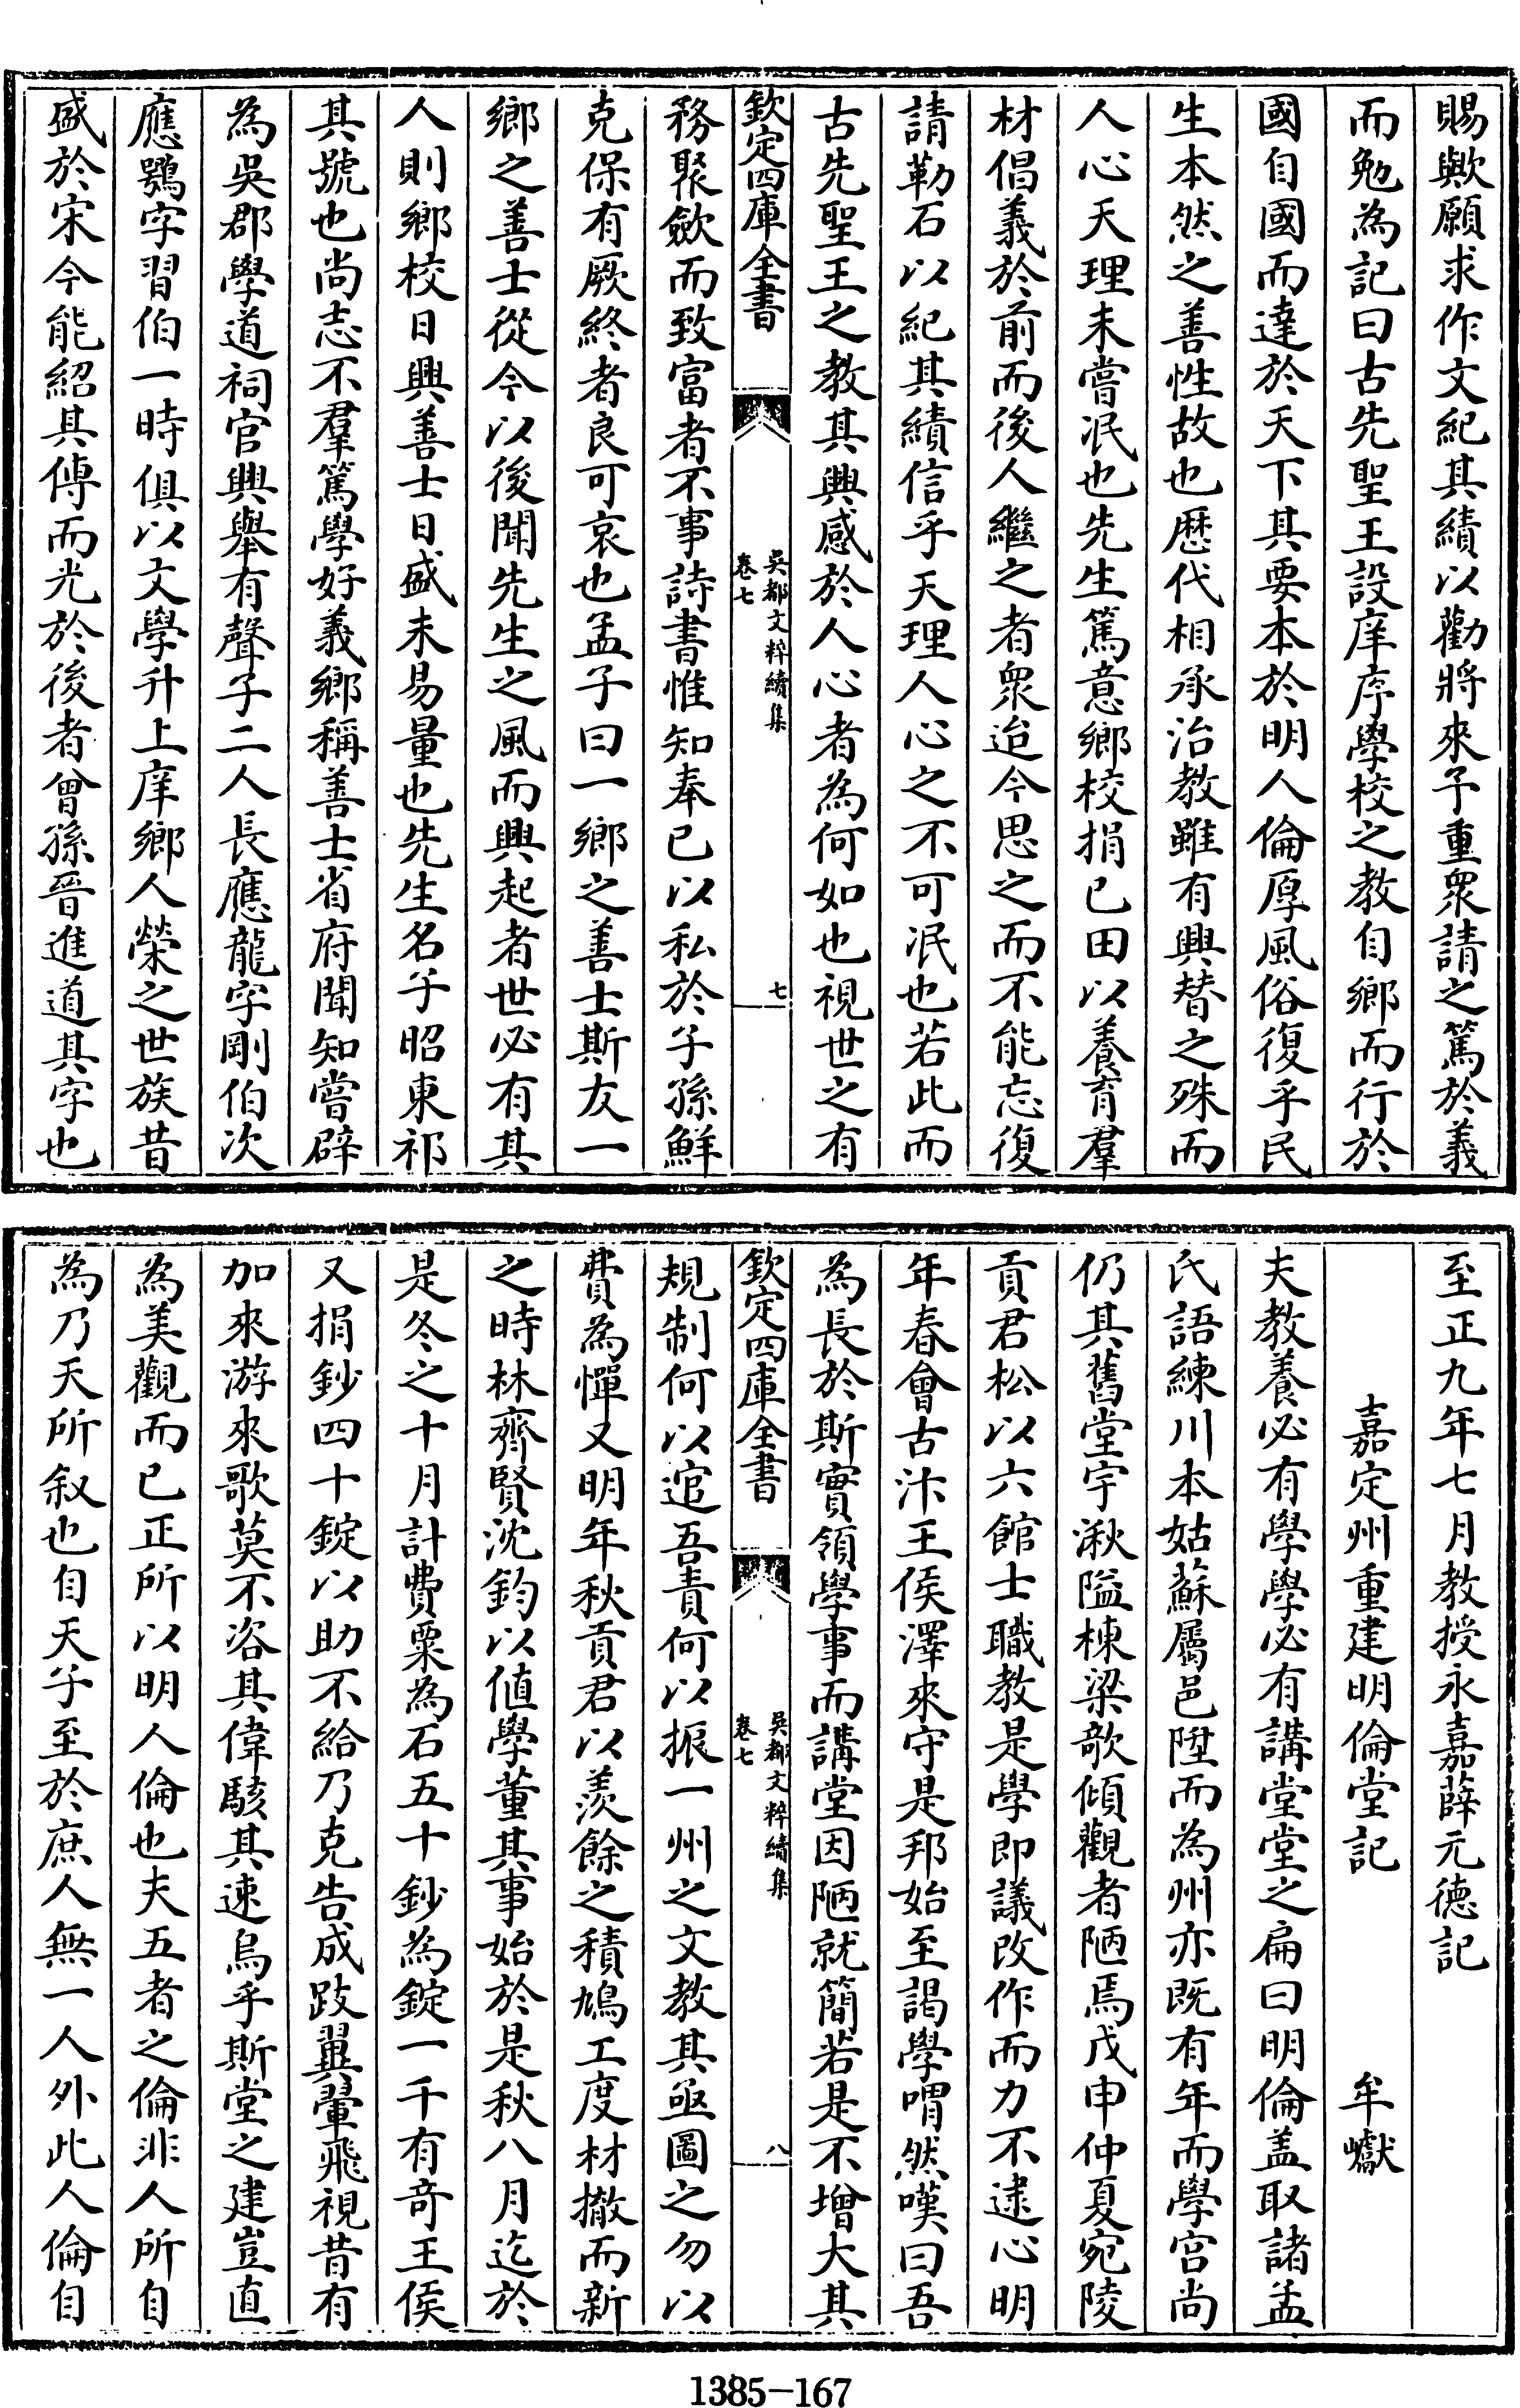 賜歟願求作文紀其績以勸將來予重衆請之篤於義
而勉為記曰古先聖王設庠序學校之教自鄉而行於
國自國而達於天下其要本於明人倫厚風俗復乎民
生本然之善性故也歷代相承治教雖有興替之殊而
人心天理未嘗泯也先生篤意鄉校捐已田以養育羣
材倡義於前而後人繼之者衆迨今思之而不能忘復
請勒石以紀其績信乎天理人心之不可泯也若此而
古先聖王之教其興感於人心者為何如也視世之有
欽定四庫全書
吳都文粹續集
卷七
七
務聚歛而致富者不事詩書惟知奉已以私於子孫鮮
克保有厥終者良可哀也孟子曰一鄉之善士斯友一
鄉之善士從今以後聞先生之風而興起者世必有其
人則鄉校日興善士日盛未易量也先生名子昭東祁
其號也尚志不羣篤學好義鄉稱善士省府聞知嘗辟
為吳郡學道祠官興舉有聲子二人長應龍字剛伯次
應鶚字習伯一時俱以文學升上庠鄉人榮之世族昔
盛於宋今能紹其傳而光於後者曾孫晉進道其字也
至正九年七月教授永嘉薛元德記
嘉定州重建明倫堂記
牟巘
夫教養必有學學必有講堂堂之扁曰明倫盖取諸孟
氏語練川本姑蘇屬邑陞而為州亦既有年而學宫尚
仍其舊堂宇湫隘棟梁欹傾觀者陋焉戊申仲夏宛陵
貢君松以六館士職教是學即議改作而力不逮心明
年春會古汴王侯澤來守是邦始至謁學喟然嘆曰吾
為長於斯實領學事而講堂因陋就簡若是不增大其
欽定四庫全書
吳都文粹續集
卷七
八
規制何以逭吾責何以振一州之文教其亟圖之勿以
費為憚又明年秋貢君以羨餘之積鳩工度材撤而新
之時林齊賢沈鈞以値學董其事始於是秋八月迄於
是冬之十月計費粟為石五十鈔為錠一千有竒王侯
又捐鈔四十錠以助不給乃克告成跂翼翬飛視昔有
加來游來歌莫不咨其偉駭其速烏乎斯堂之建豈直
為美觀而已正所以明人倫也夫五者之倫非人所自
為乃天所叙也自天子至於庶人無一人外此人倫自
1385-167